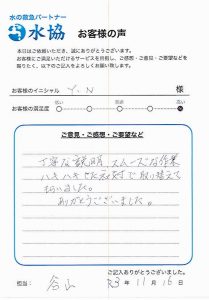 水の救急パートナー
水協 お客様の声
本日はご依頼いただき、誠にありがとうございます。
お客様にご満足いただけるサービスを目指し、ご感想・ご意見・ご要望などを
賜りたく、以下のご記入をよろしくお願い致します。
お客様のイニシャル Y.N 様
お客様の満足度 低い 普通 高い
ご意見・ご感想・ご要望など
丁寧な説明 スムーズな作業
ハキハキした応対で取り替えて
もらいました。
ありがとうございました。
ご記入ありがとうございました。
担当: R3年11月16日